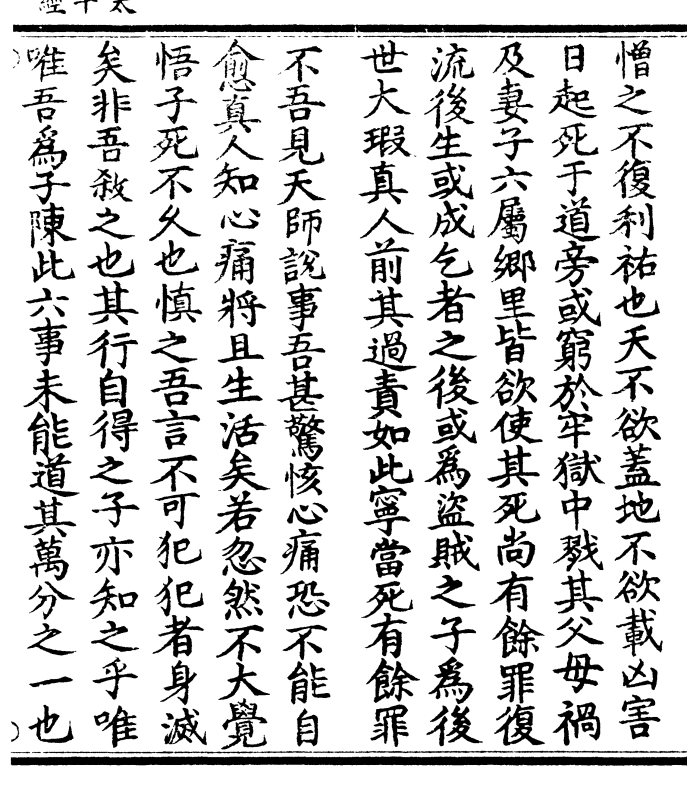 太平經
憎之不復利祐也天不欲蓋地不欲載凶害
日起死于道旁或窮於牢獄中戮其父母禍
及妻子六屬鄉里皆欲使其死尚有餘罪復
流後生或成乞者之後或爲盜賊之子爲後
世大瑕真人前其過責如此寧當死有餘罪
不吾見天師說事吾甚驚恢心痛恐不能自
愈真人知心痛將且生活矣若忽然不大覺
悟子死不久也慎之吾言不可犯犯者身滅
矣非吾殺之也其行自得之子亦知之乎唯
唯吾爲子陳此六事未能道其萬分之一也